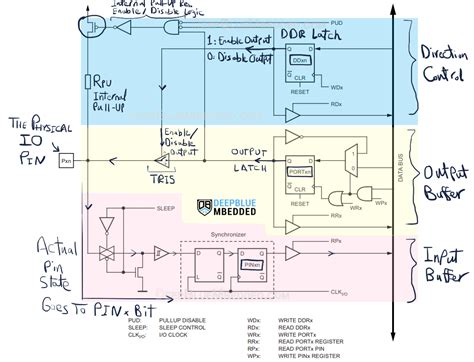 Internal Pull-Up Res
Enable/Disable Logic
PUD
1: Enable Output
0: Disable Output
DDR Latch
Q D
DDxn
Q CLR
RESET
WDx
RDx
Direction
Control
RPU
Internal
Pull-UP
The Physical
IO
PIN
Pxn
Enable/
Disable
TRIS
OUTPUT
LATCH
Q D
PORTxn
Q CLR
RESET
1
0
WPx
WRx
RRx
DATA BUS
Output
Buffer
DEEPBLUE
MBEDDED
SLEEP
Synchronizer
D Q
L Q
D Q
PINxn
Q
RPx
CLK I/O
Actual
Pin
State
Goes To PINx Bit
Input
Buffer
PUD: PULLUP DISABLE
SLEEP: SLEEP CONTROL
CLKI/O: I/O CLOCK
WDx: WRITE DDRx
RDx: READ DDRx
WRx: WRITE PORTx
RRx: READ PORTx REGISTER
RPx: READ PORTx PIN
WPx: WRITE PINx REGISTER